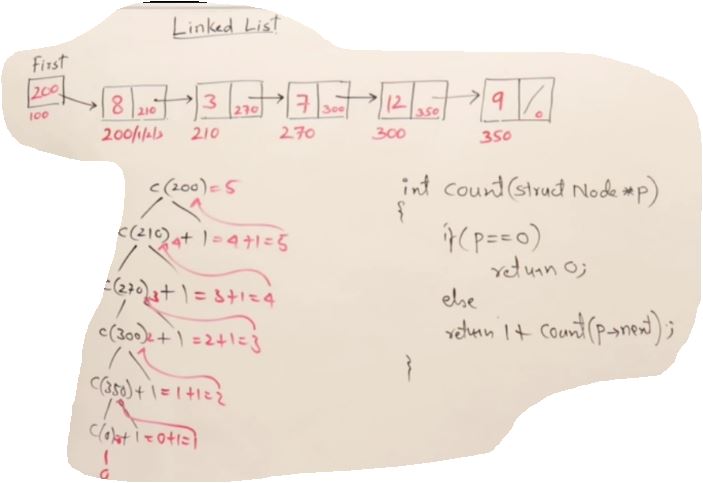 Linked List
First
200
100
8 210
3 270
7 300
12 350
9 0
210
270
300
350
c(200)=5
c(210)4+1=4+1=5
c(270)3+1=3+1=4
c(300)2+1=2+1=3
c(350)+1=1+1=2
c(0)+1=0+1=1
0
int count(struct Node *p)
{
if(p==0)
return 0;
else
return 1+ count(p→next);
}